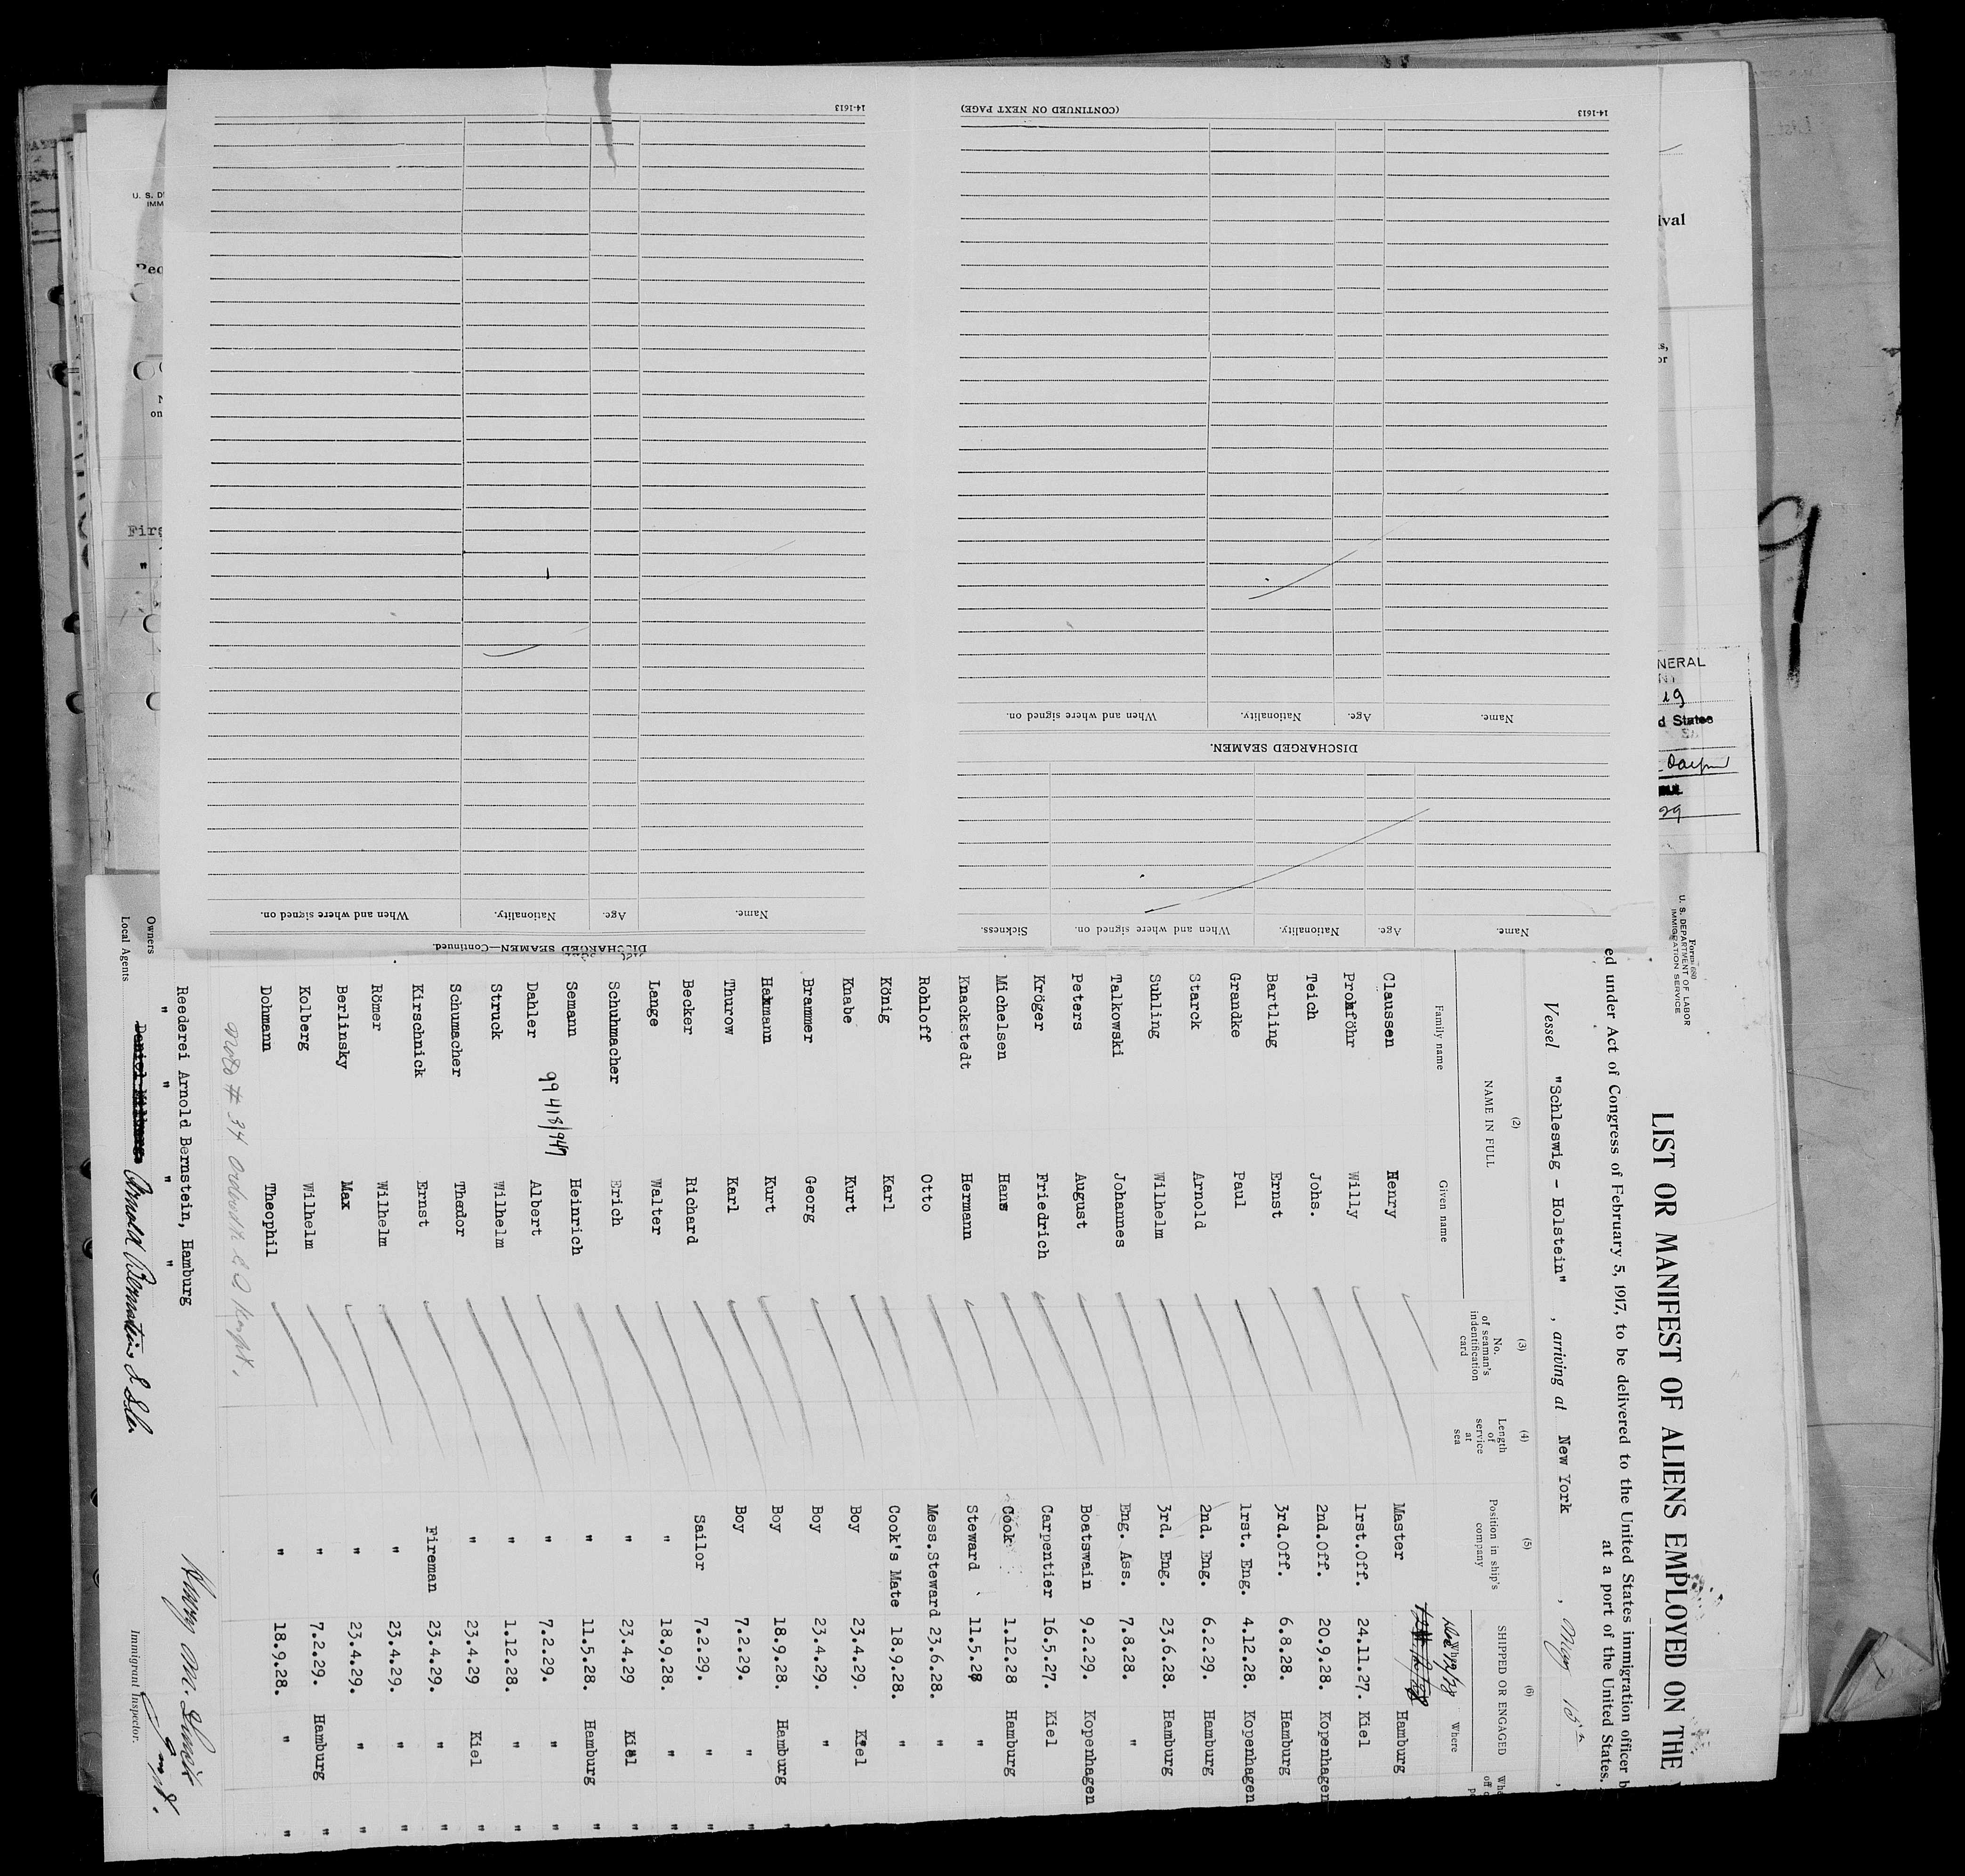 14-1613
(CONTINUED ON NEXT PAGE)
14-1613
When and where signed on.
Nationality.
Age.
Name.
DISCHARGED SEAMEN.
When and where signed on.
Nationality.
Age.
Name.
DISCHARGED SEAMEN—Continued.
Sickness.
When and where signed on.
Nationality.
Age.
Name.
U. S. D
IMM
on
Firs
"
ival
s,
or
NERAL
19
d States
29
9
Form 680
U. S. DEPARTMENT OF LABOR
IMMIGRATION SERVICE
LIST OR MANIFEST OF ALIENS EMPLOYED ON THE
ed under Act of Congress of February 5, 1917, to be delivered to the United States immigration officer b
at a port of the United States.
Vessel "Schleswig - Holstein" , arriving at New York , May 15th ,
(2) (3) (4) (5) (6)
NAME IN FULL No. of seaman's indentification card Length of service at sea Position in ship's company SHIPPED OR ENGAGED
Family name Given name When Where
Claussen Henry Master Hamburg
Promföhr Willy 1rst.Off. 24.11.27. Kiel
Teich Johs. 2nd.Off. 20.9.28. Kopenhagen
Bartling Ernst 3rd.Off. 6.8.28. Hamburg
Grandke Paul 1rst. Eng. 4.12.28. Kopenhagen
Starck Arnold 2nd. Eng. 6.2.29. Hamburg
Suhling Wilhelm 3rd. Eng. 23.6.28. Hamburg
Talkowski Johannes Eng. Ass. 7.8.28. "
Peters August Boatswain 9.2.29. Kopenhagen
Kröger Friedrich Carpentier 16.5.27. Kiel
Michelsen Hans Cook 1.12.28 Hamburg
Knackstedt Hermann Steward 11.5.28 "
Rohloff Otto Mess.Steward 23.6.28. "
König Karl Cook's Mate 18.9.28. "
Knabe Kurt Boy 23.4.29. Kiel
Brammer Georg Boy 23.4.29. "
Hamann Kurt Boy 18.9.28. Hamburg "
Thurow Karl Boy 7.2.29. " "
Becker Richard Sailor 7.2.29. " "
Lange Walter " 18.9.28. " "
Schuhmacher Erich " 23.4.29 Kiel "
Semann Heinrich " 11.5.28. Hamburg "
99418/947
Dahler Albert " 7.2.29. " "
Struck Wilhelm " 1.12.28. " "
Schumacher Theodor " 23.4.29 Kiel "
Kirschnick Ernst Fireman 23.4.29. " "
Römer Wilhelm " 23.4.29. " "
Berlinsky Max " 23.4.29. " "
Kolberg Wilhelm " 7.2.29. Hamburg "
Dohmann Theophil " 18.9.28. " "
Reederei Arnold Bernstein, Hamburg
Owners " " " "
Local Agents Arnold Bernstein S. S. Co.
Immigrant Inspector.